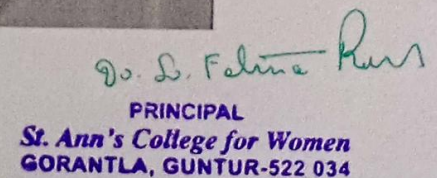 Dr. Sr. Fatima Rani
PRINCIPAL
St. Ann's College for Women
GORANTLA, GUNTUR-522 034